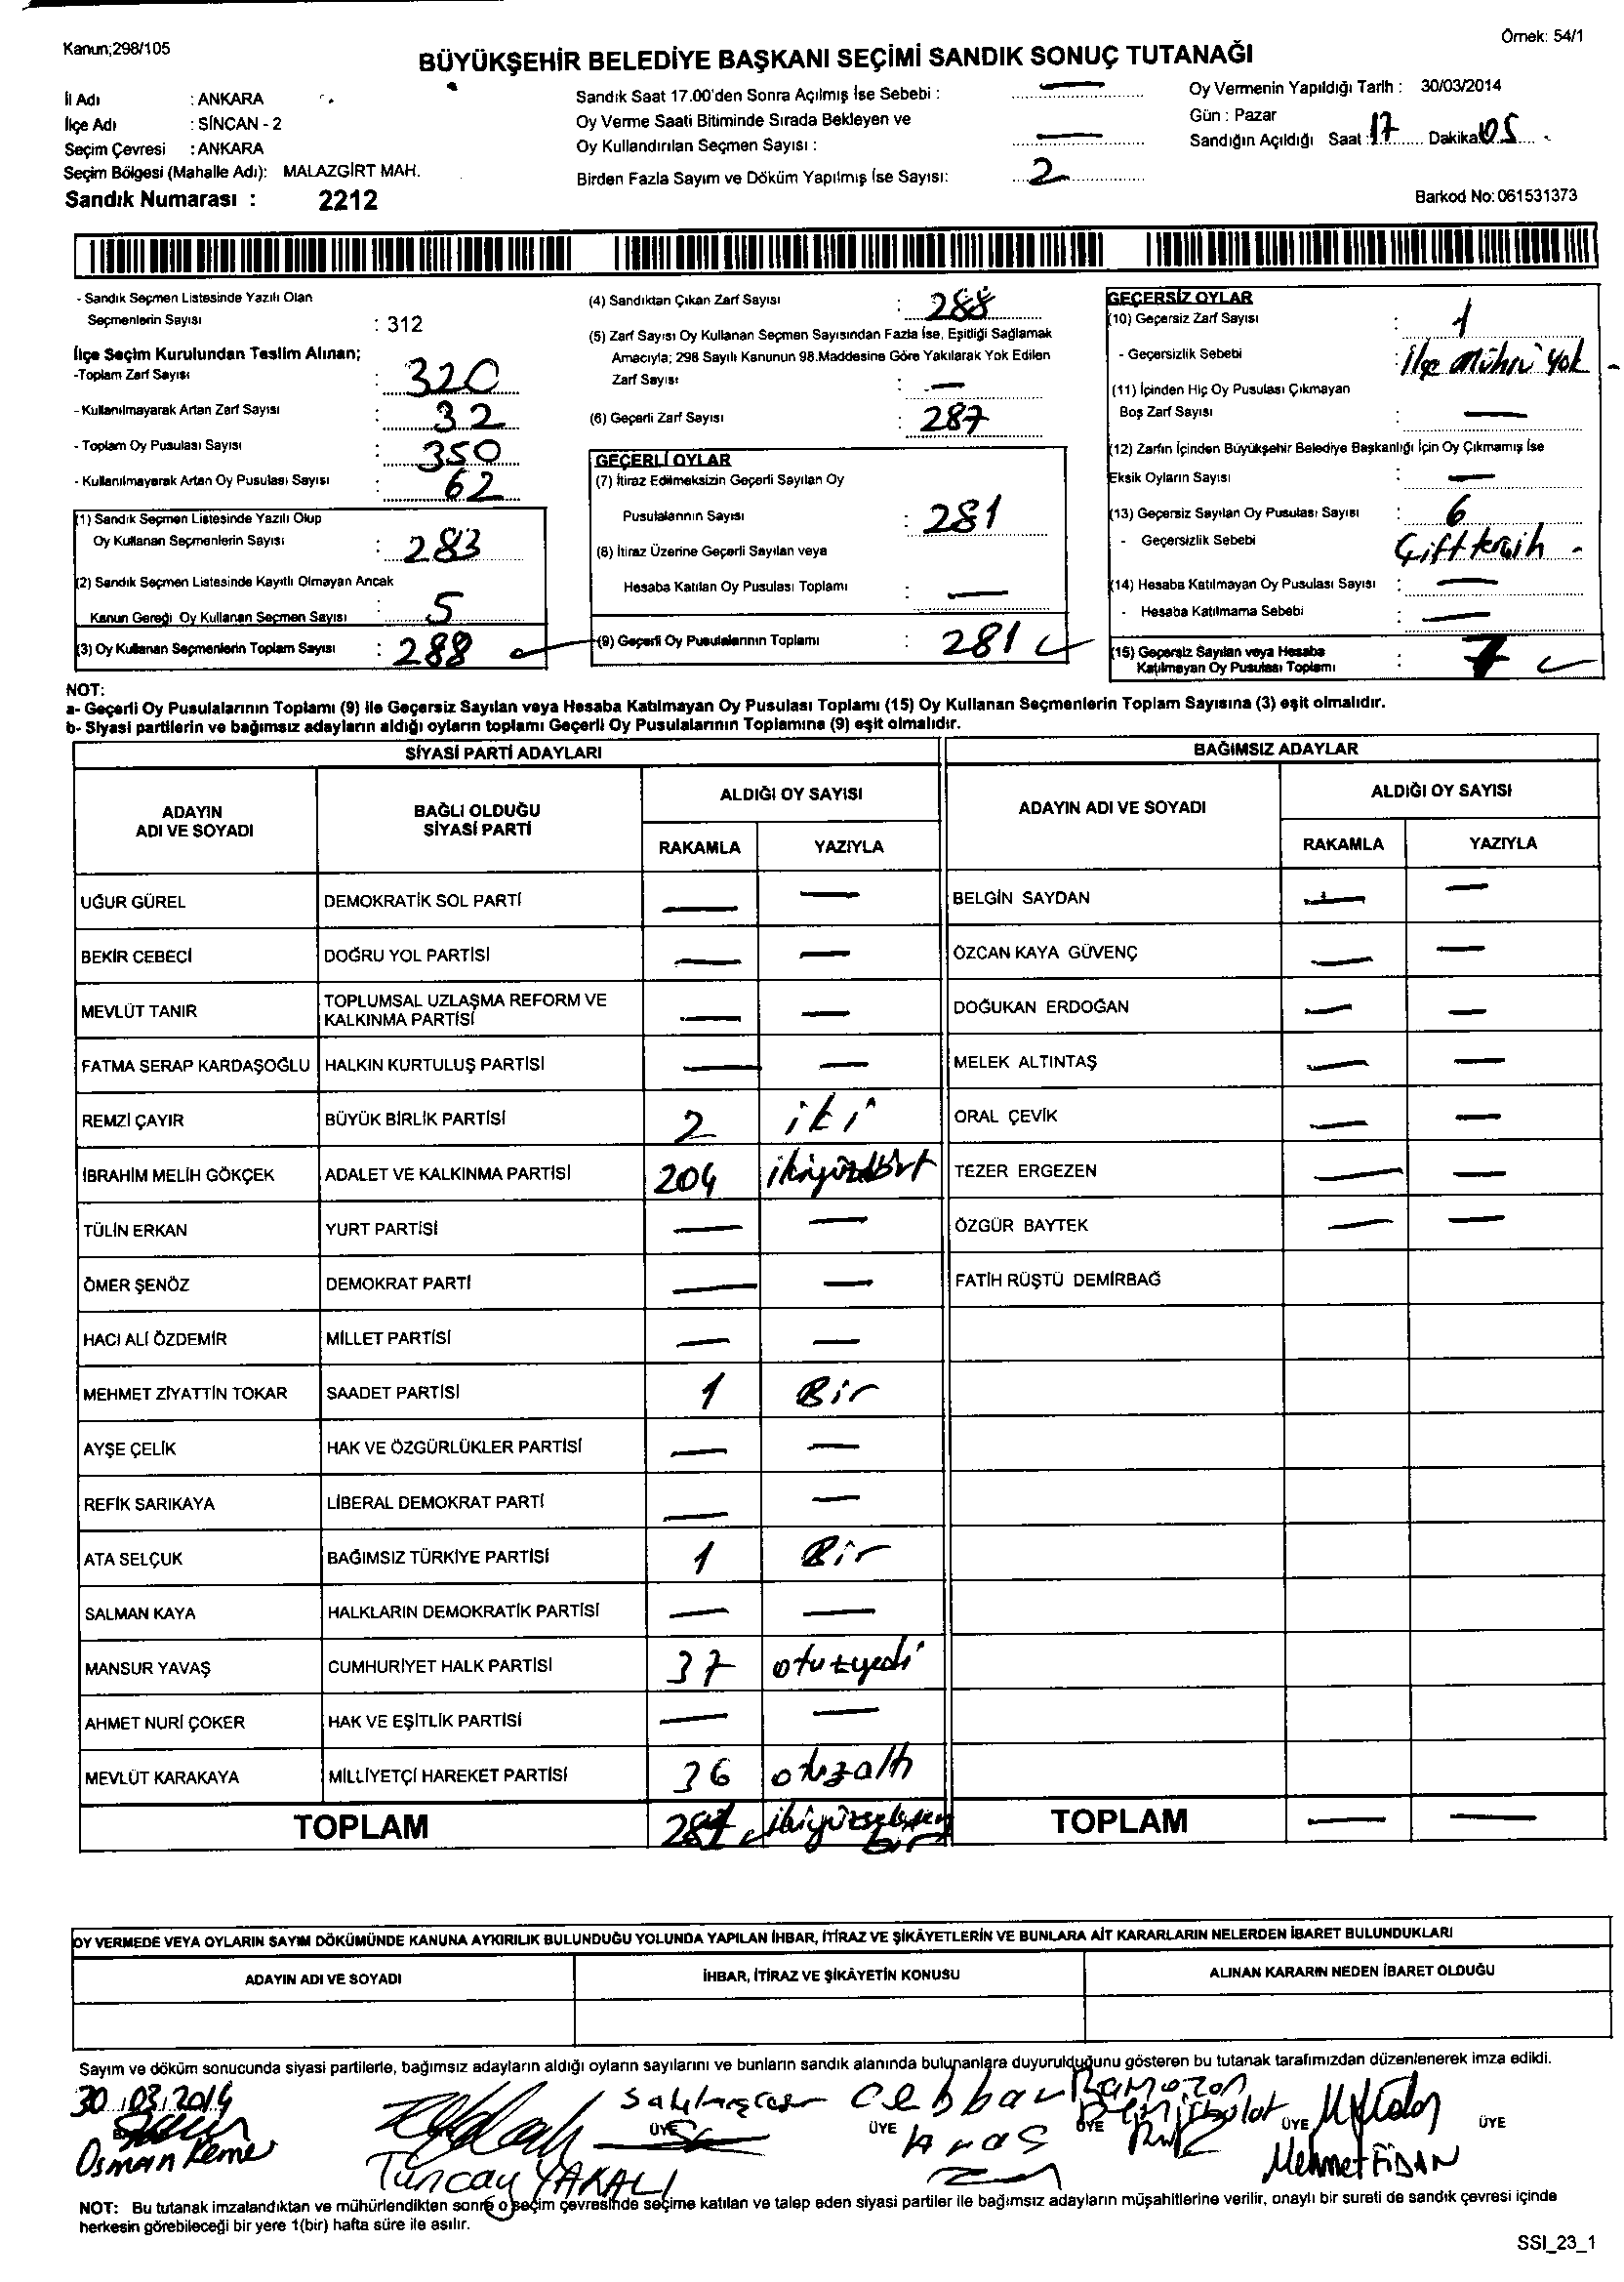 Kanun;298/105
Örnek: 54/1
BÜYÜKŞEHİR BELEDİYE BAŞKANI SEÇİMİ SANDIK SONUÇ TUTANAĞI
İl Adı : ANKARA
İlçe Adı : SİNCAN - 2
Seçim Çevresi : ANKARA
Seçim Bölgesi (Mahalle Adı): MALAZGİRT MAH.
Sandık Numarası : 2212
Sandık Saat 17.00'den Sonra Açılmış İse Sebebi : —
Oy Verme Saati Bitiminde Sırada Bekleyen ve
Oy Kullandırılan Seçmen Sayısı : —
Birden Fazla Sayım ve Döküm Yapılmış İse Sayısı: 2
Oy Vermenin Yapıldığı Tarih : 30/03/2014
Gün : Pazar
Sandığın Açıldığı Saat : 17 Dakika 05
Barkod No: 061531373
- Sandık Seçmen Listesinde Yazılı Olan
Seçmenlerin Sayısı : 312
İlçe Seçim Kurulundan Teslim Alınan;
-Toplam Zarf Sayısı : 320
- Kullanılmayarak Artan Zarf Sayısı : 32
- Toplam Oy Pusulası Sayısı : 350
- Kullanılmayarak Artan Oy Pusulası Sayısı : 62
(1) Sandık Seçmen Listesinde Yazılı Olup
Oy Kullanan Seçmenlerin Sayısı : 283
(2) Sandık Seçmen Listesinde Kayıtlı Olmayan Ancak
Kanun Gereği Oy Kullanan Seçmen Sayısı : 5
(3) Oy Kullanan Seçmenlerin Toplam Sayısı : 288
(4) Sandıktan Çıkan Zarf Sayısı : 288
(5) Zarf Sayısı Oy Kullanan Seçmen Sayısından Fazla İse, Eşitliği Sağlamak
Amacıyla; 298 Sayılı Kanunun 98.Maddesine Göre Yakılarak Yok Edilen
Zarf Sayısı : —
(6) Geçerli Zarf Sayısı : 287
GEÇERLİ OYLAR
(7) İtiraz Edilmeksizin Geçerli Sayılan Oy
Pusulalarının Sayısı : 281
(8) İtiraz Üzerine Geçerli Sayılan veya
Hesaba Katılan Oy Pusulası Toplamı : —
(9) Geçerli Oy Pusulalarının Toplamı : 281
GEÇERSİZ OYLAR
(10) Geçersiz Zarf Sayısı : 1
- Geçersizlik Sebebi : İlçe Mührü Yok
(11) İçinden Hiç Oy Pusulası Çıkmayan
Boş Zarf Sayısı : —
(12) Zarfın İçinden Büyükşehir Belediye Başkanlığı İçin Oy Çıkmamış İse
Eksik Oyların Sayısı : —
(13) Geçersiz Sayılan Oy Pusulası Sayısı : 6
- Geçersizlik Sebebi Çift tercih
(14) Hesaba Katılmayan Oy Pusulası Sayısı : —
- Hesaba Katılmama Sebebi : —
(15) Geçersiz Sayılan veya Hesaba
Katılmayan Oy Pusulası Toplamı : 7
NOT:
a- Geçerli Oy Pusulalarının Toplamı (9) ile Geçersiz Sayılan veya Hesaba Katılmayan Oy Pusulası Toplamı (15) Oy Kullanan Seçmenlerin Toplam Sayısına (3) eşit olmalıdır.
b- Siyasi partilerin ve bağımsız adayların aldığı oyların toplamı Geçerli Oy Pusulalarının Toplamına (9) eşit olmalıdır.
SİYASİ PARTİ ADAYLARI
ADAYIN ADI VE SOYADI BAĞLI OLDUĞU SİYASİ PARTİ ALDIĞI OY SAYISI RAKAMLA YAZIYLA
UĞUR GÜREL DEMOKRATİK SOL PARTİ — —
BEKİR CEBECİ DOĞRU YOL PARTİSİ — —
MEVLÜT TANIR TOPLUMSAL UZLAŞMA REFORM VE KALKINMA PARTİSİ — —
FATMA SERAP KARDAŞOĞLU HALKIN KURTULUŞ PARTİSİ — —
REMZİ ÇAYIR BÜYÜK BİRLİK PARTİSİ 2 iki
İBRAHİM MELİH GÖKÇEK ADALET VE KALKINMA PARTİSİ 204 ikiyüzdört
TÜLİN ERKAN YURT PARTİSİ — —
ÖMER ŞENÖZ DEMOKRAT PARTİ — —
HACI ALİ ÖZDEMİR MİLLET PARTİSİ — —
MEHMET ZİYATTİN TOKAR SAADET PARTİSİ 1 Bir
AYŞE ÇELİK HAK VE ÖZGÜRLÜKLER PARTİSİ — —
REFİK SARIKAYA LİBERAL DEMOKRAT PARTİ — —
ATA SELÇUK BAĞIMSIZ TÜRKİYE PARTİSİ 1 Bir
SALMAN KAYA HALKLARIN DEMOKRATİK PARTİSİ — —
MANSUR YAVAŞ CUMHURİYET HALK PARTİSİ 37 otuzyedi
AHMET NURİ ÇOKER HAK VE EŞİTLİK PARTİSİ — —
MEVLÜT KARAKAYA MİLLİYETÇİ HAREKET PARTİSİ 36 otuzaltı
TOPLAM 281 ikiyüzseksen bir
BAĞIMSIZ ADAYLAR
ADAYIN ADI VE SOYADI ALDIĞI OY SAYISI RAKAMLA YAZIYLA
BELGİN SAYDAN — —
ÖZCAN KAYA GÜVENÇ — —
DOĞUKAN ERDOĞAN — —
MELEK ALTINTAŞ — —
ORAL ÇEVİK — —
TEZER ERGEZEN — —
ÖZGÜR BAYTEK — —
FATİH RÜŞTÜ DEMİRBAĞ
TOPLAM — —
OY VERMEDE VEYA OYLARIN SAYIM DÖKÜMÜNDE KANUNA AYKIRILIK BULUNDUĞU YOLUNDA YAPILAN İHBAR, İTİRAZ VE ŞİKÂYETLERİN VE BUNLARA AİT KARARLARIN NELERDEN İBARET BULUNDUKLARI
ADAYIN ADI VE SOYADI İHBAR, İTİRAZ VE ŞİKÂYETİN KONUSU ALINAN KARARIN NEDEN İBARET OLDUĞU
Sayım ve döküm sonucunda siyasi partilerle, bağımsız adayların aldığı oyların sayılarını ve bunların sandık alanında bulunanlara duyurulduğunu gösteren bu tutanak tarafımızdan düzenlenerek imza edildi.
30.03.2014
Cebbar Ramazan
ÜYE ÜYE ÜYE ÜYE ÜYE
Aras
Osman Tuncay YAKALI Mehmet FİDAN
NOT: Bu tutanak imzalandıktan ve mühürlendikten sonra o seçim çevresinde seçime katılan ve talep eden siyasi partiler ile bağımsız adayların müşahitlerine verilir, onaylı bir sureti de sandık çevresi içinde
herkesin görebileceği bir yere 1(bir) hafta süre ile asılır.
SSI_23_1